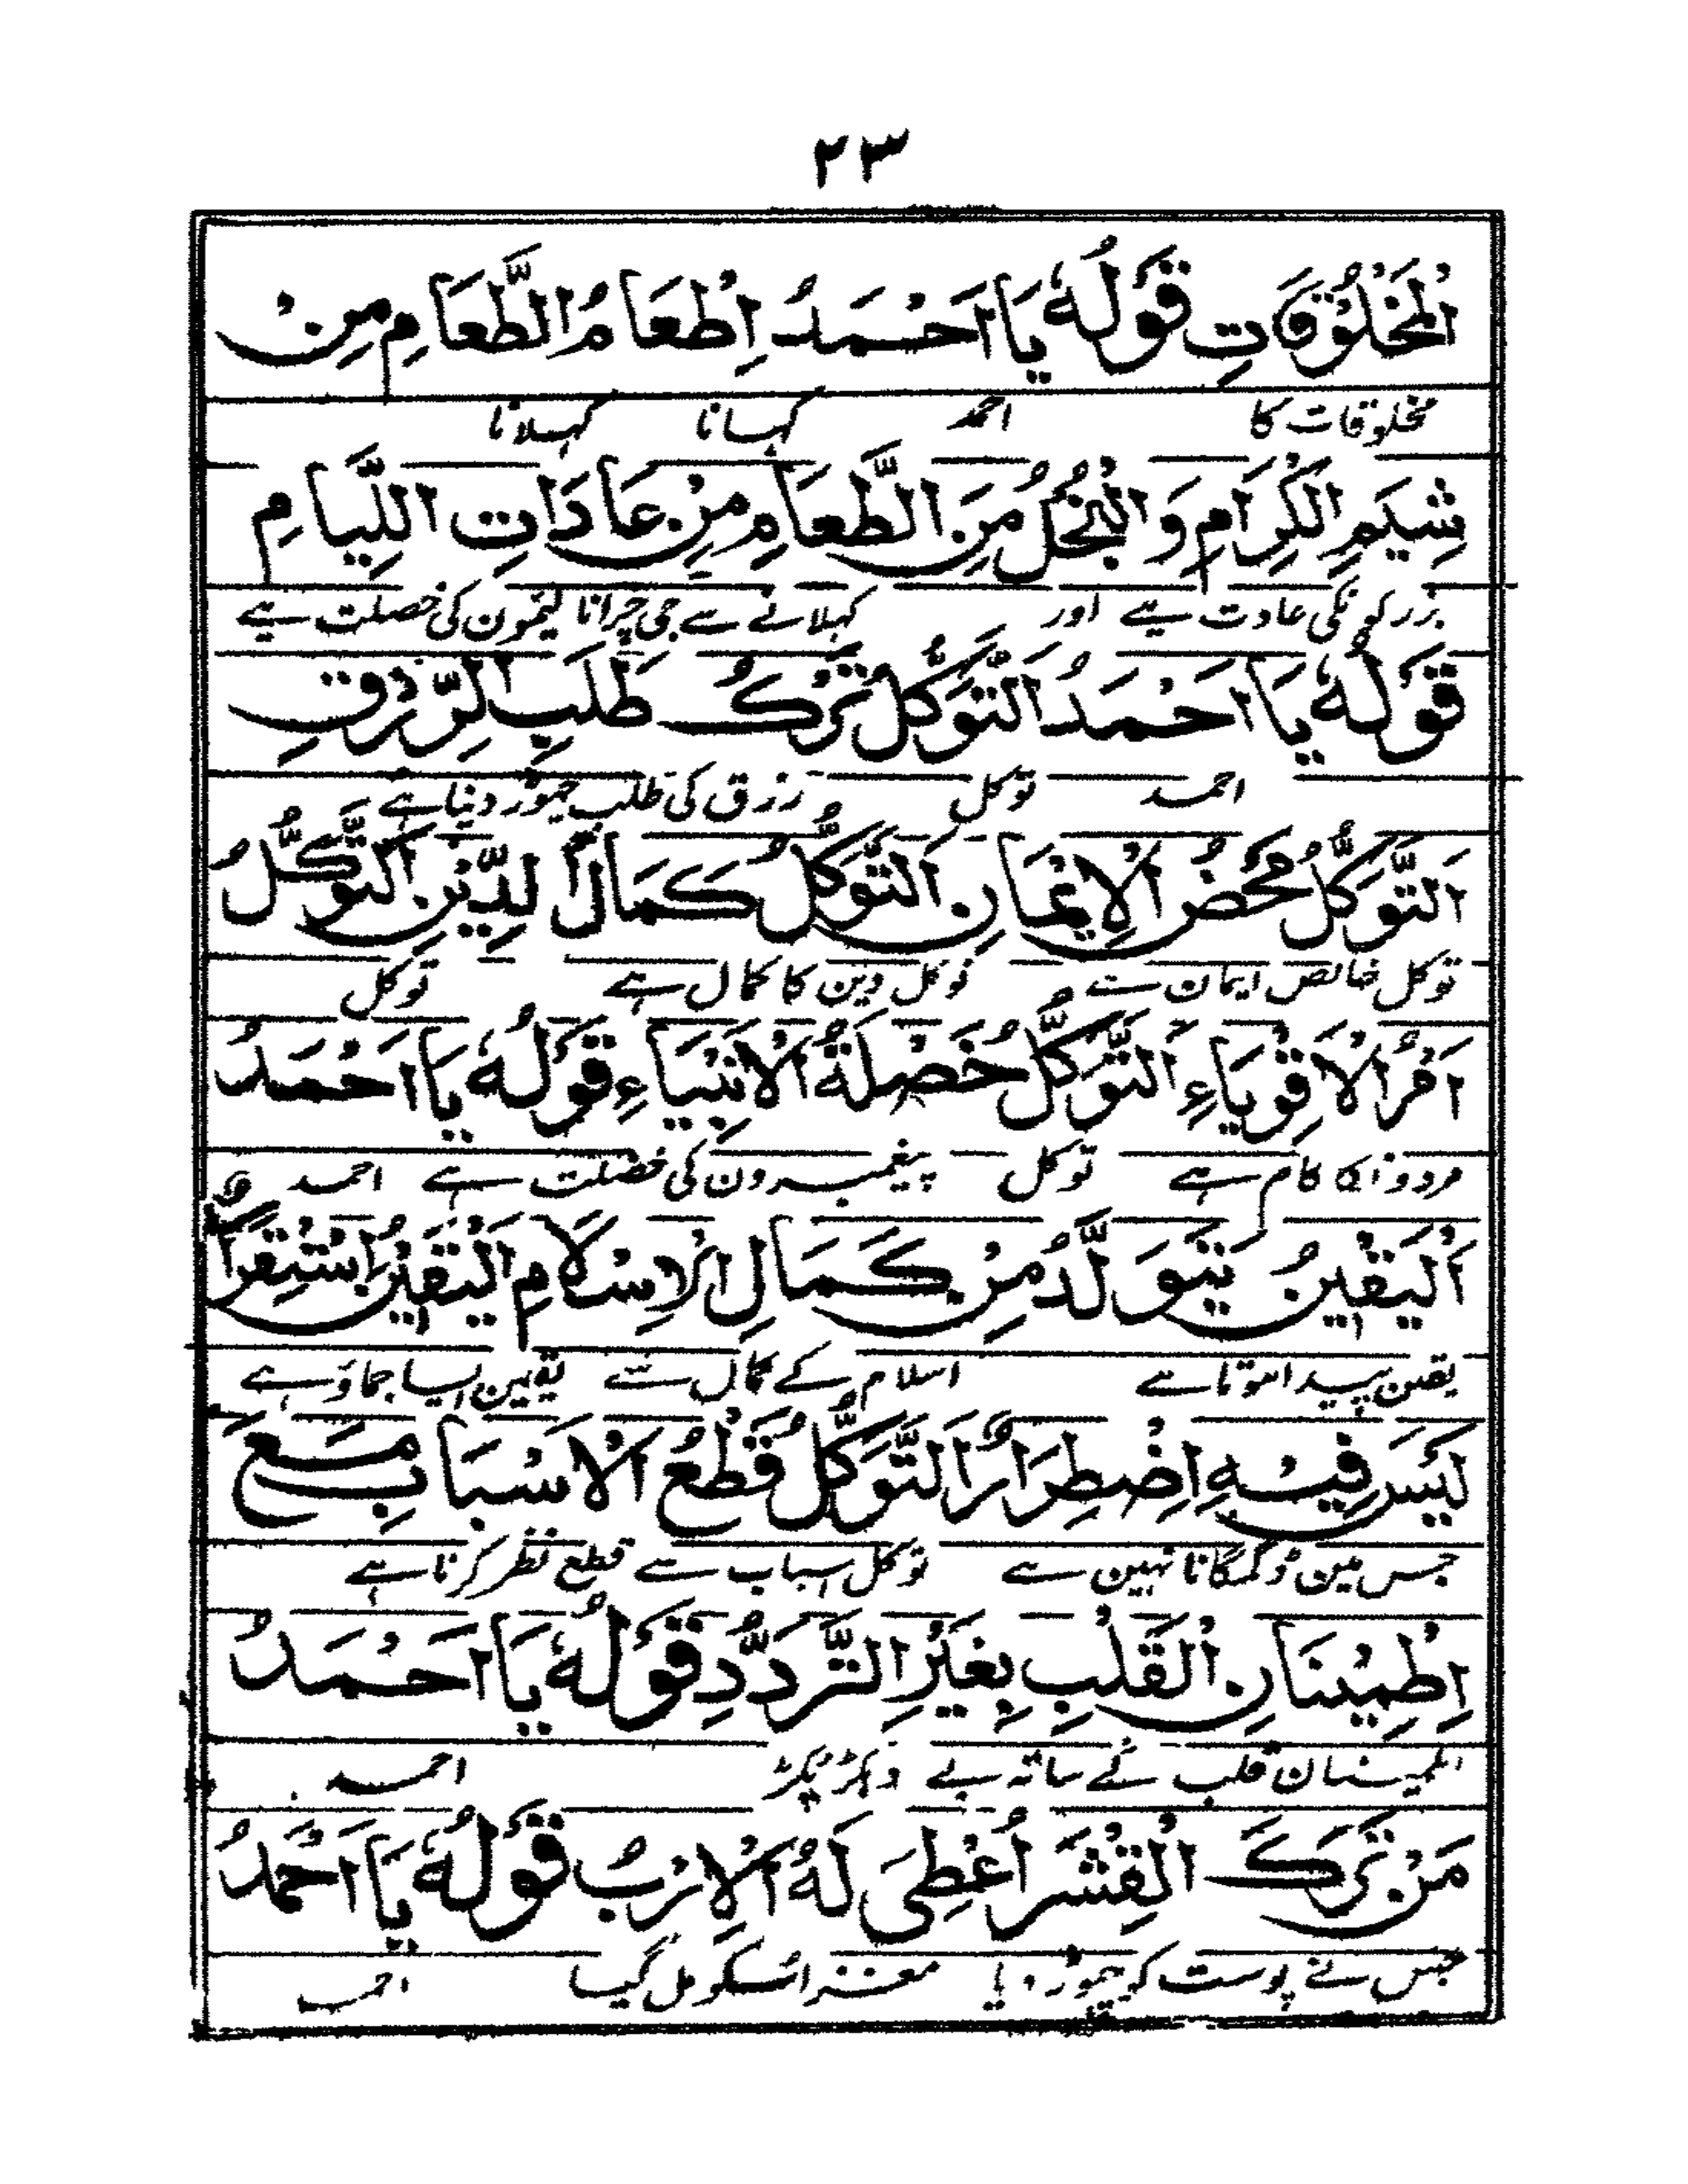 ۲۳
الْمَخْلُوْقَاتِ قَوْلُهٗ يَا اَحْمَدُ اِطْعَامُ الطَّعَامِ مِنْ
مخلوقات کا احمد کہانا کہلانا
شِيَمِ الْكِرَامِ وَ الْبُخْلُ مِنَ الطَّعَامِ مِنْ عَادَاتِ اللِّيَامِ
بزرگونکی عادت ہے اور کہلانے سے جی چرانا لئیمون کی خصلت ہے
قَوْلُهٗ يَا اَحْمَدُ التَّوَكُّلُ تَرْكُ طَلَبِ الرِّزْقِ
احمد توکل رزق کی طلب چھوڑ دینا ہے
اَلتَّوَكُّلُ مَحْضُ الْاِيْمَانِ اَلتَّوَكُّلُ كَمَالُ الدِّيْنِ اَلتَّوَكُّلُ
توکل خالص ایمان ہے توکل دین کا کمال ہے توکل
اَمْرُ الْاَقْوِيَاءِ اَلتَّوَكُّلُ خَصْلَةُ الْاَنْبِيَاءِ قَوْلُهٗ يَا اَحْمَدُ
مردونکا کام ہے توکل پیغمبرون کی خصلت ہے احمد
اَلْيَقِيْنُ يَتَوَلَّدُ مِنْ كَمَالِ الْاِسْلَامِ الْيَقِيْنُ اِسْتِقْرَارٌ
یقین پیدا ہوتا ہے اسلام کے کمال سے یقین ایسا جماؤ ہے
لَيْسَ فِيْهِ اِضْطِرَارٌ اَلتَّوَكُّلُ قَطْعُ الْاَسْبَابِ مَعَ
جس مین ڈگمگانا نہین ہے توکل اسباب سے قطع نظر کرنا ہے
اِطْمِيْنَانِ الْقَلْبِ بِغَيْرِ التَّرَدُّدِ قَوْلُهٗ يَا اَحْمَدُ
اطمینان قلب کے ساتہ بے احمد
مَنْ تَرَكَ الْقِشْرَ اُعْطِيَ لَهُ الْاِرْبُ قَوْلُهٗ يَا اَحْمَدُ
جس نے پوست کو چھوڑ دیا مغز اسکو مل گیا احمد